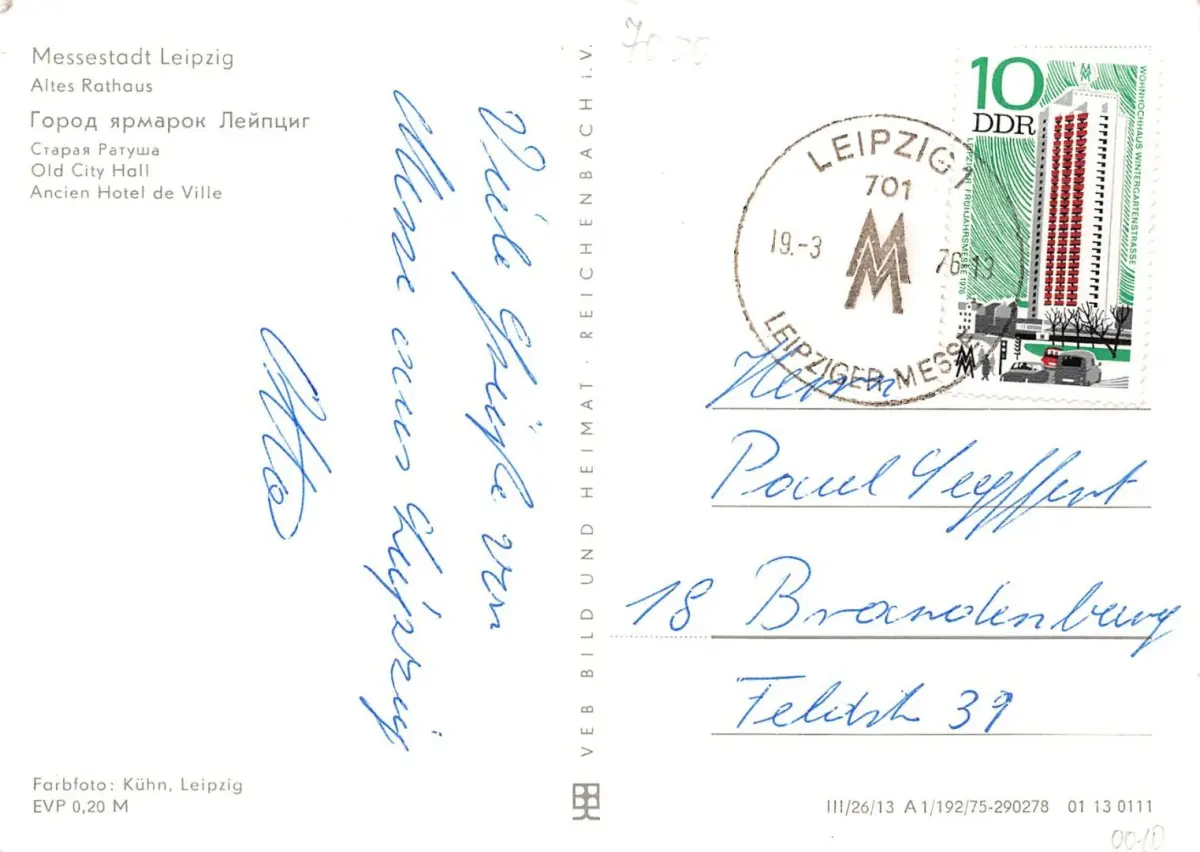 Messestadt Leipzig
Altes Rathaus
Город ярмарок Лейпциг
Старая Ратуша
Old City Hall
Ancien Hotel de Ville
Viele Grüße von
Messe aus Leipzig
Otto
Farbfoto: Kühn, Leipzig
EVP 0,20 M
VEB BILD UND HEIMAT · REICHENBACH i.V.
7030
LEIPZIG 1
701
19.-3 76-13
LEIPZIGER MESSE
10
DDR
WOHNHOCHHAUS WINTERGARTENSTRASSE
LEIPZIGER FRÜHJAHRSMESSE 1976
Herrn
Paul Seyffert
18 Brandenburg
Feldstr 39
III/26/13 A 1/192/75-290278 01 13 0111
00-10